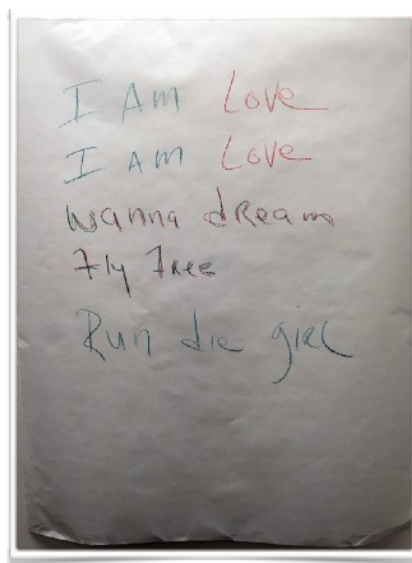 I Am Love
I Am Love
wanna dream
Fly Free
Run die girl